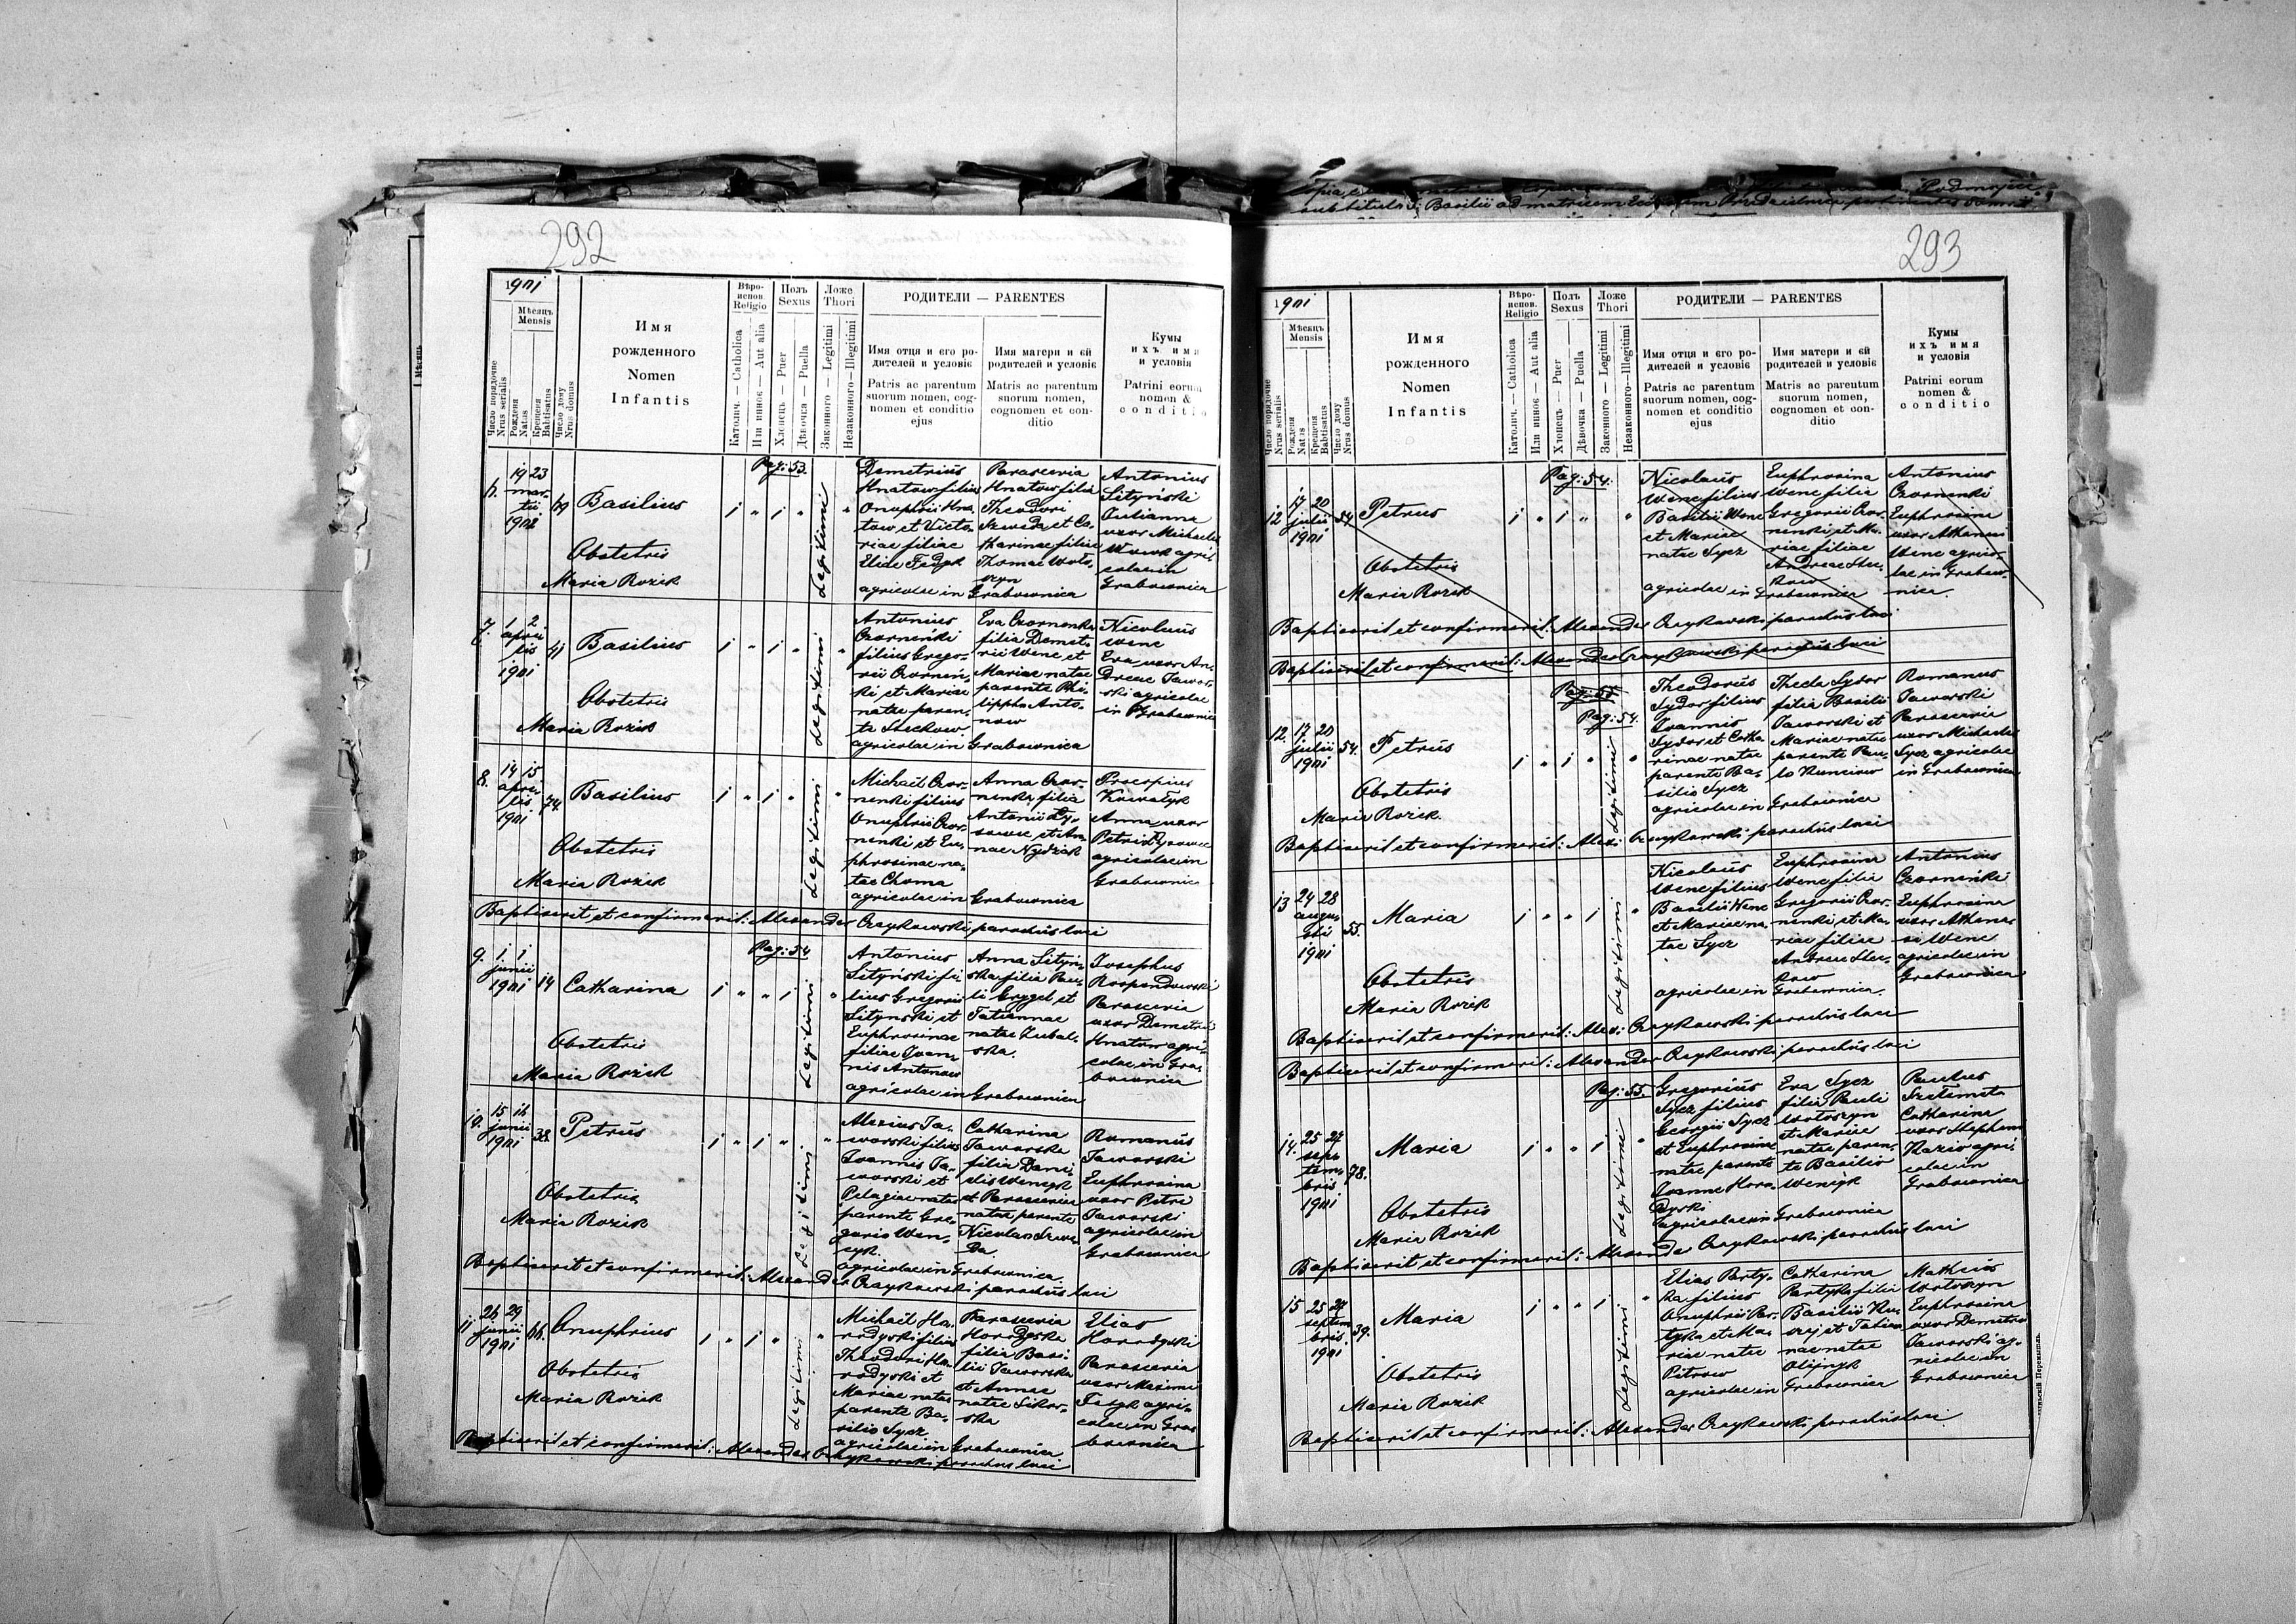 292
1901
Мѣсяцъ
Mensis
Число порядочне
Nrus serialis
Рожденя
Natus
Крещеня
Babtisatus
Число дому
Nrus domus
Имя
рожденного
Nomen
Infantis
Вѣро-
испов.
Religio
Католич. — Catholica
Или инноє — Aut alia
Полъ
Sexus
Хлопецъ — Puer
Дѣвочка — Puella
Ложе
Thori
Законного — Legitimi
Незаконного — Illegitimi
РОДИТЕЛИ — PARENTES
Имя отця и єго ро-
дителей и условіє
Patris ac parentum
suorum nomen, cog-
nomen et conditio
ejus
Имя матери и єй
родителей и условіє
Matris ac parentum
suorum nomen,
cognomen et con-
ditio
Кумы
ихъ имя
и условія
Patrini eorum
nomen &
conditio
Pag: 53.
6.
19 23
mar-
tii
79
Basilius
Obstetrix
Maria Rozik
Legitimi
Demetrius
Hnatow filius
Onuphrii Hna-
tow et Victo-
riae filiae
Eliae Fedyk
agricolae in Grabownica
Parascevia
Hnatow filia
Theodori
Szweda et Ca-
tharinae filiae
Thomae Woło-
szyn
Antonius
Sityński
Julianna
uxor Michaelis
agri-
colae in
Grabownica
7.
1 2
apri-
lis
1901
41
Basilius
Obstetrix
Maria Rozik
Legitimi
Antonius
Czorneńki
filius Grego-
rii Czorneń-
ki et Mariae
natae paren-
te Seckow
agricolae in Grabownica
Eva Czornenka
filia Demet-
rii Wenc et
Mariae natae
parente Phi-
lippho Anto-
now
Nicolaus
Wenc
Eva uxor An-
dreae Jawor-
ski agricolae
in Grabownica
8.
14 15
apri-
lis
1901
74.
Basilius
Obstetrix
Maria Rozik
Legitimi
Michaël Czor-
nenki filius
Onuphrii Czor-
nenki et Eu-
phrosinae na-
tae Choma
agricolae in Grabownica
Anna Czor-
nenka filia
Antonii Ły-
sowec et An-
nae Nydzik
Procopius
Anna uxor
Petri Łysowec
agricolae in
Grabownica
Baptisavit et confirmavit: Alexander Czaykowski parochus loci
Pag: 54.
9.
1. 1
junii
1901
14
Catharina
Obstetrix
Maria Rozik
Legitimi
Antonius
Sityński fi-
lius Gregorii
Sitynski et
Euphrosinae
filiae Joan-
nis Antonow
agricolae in Grabownica
Anna Sityń-
ska filia Pau-
li Grygel et
Tatiannae
natae Zubal-
ska.
Josephus
Rospondowski
Parascevia
uxor Demetrii
Hnatow agri-
colae in Gra-
bownica
10.
15 16
junii
1901
38.
Petrus
Obstetrix
Maria Rozik
Legitimi
Alexius Ja-
worski filius
Joannis Ja-
worski et
Pelagiae natae
parente Gre-
gorio Wen-
cyk.
agricolae in Grabownica.
Catharina
Jaworska
filia Dani-
elis Wencyk
et Parasceviae
natae parente
Nicolao Szwe-
da
Romanus
Jaworski
Euphrosina
uxor Petri
Jaworski
agricolae in
Grabownica
Baptisavit et confirmavit: Alexander Czaykowski parochus loci
11.
26 29
junii
1901
66.
Onuphrius
Obstetrix
Maria Rozik
Legitimi
Michaël Ho-
rodyski filius
Theodori Ho-
rodyski et
Mariae natae
parente Ba-
silio Sycz
agricolae in Grabownica
Parascevia
Horodyska
filia Basi-
lii Jaworska
et Annae
natae Sikor-
ska
Elias
Horodyski
Parascevia
uxor Maximi
agri-
colae in Gra-
bownica
Baptisavit et confirmavit: Alexander Czaykowski parochus loci
293
1901
Мѣсяцъ
Mensis
Число порядочне
Nrus serialis
Рожденя
Natus
Крещеня
Babtisatus
Число дому
Nrus domus
Имя
рожденного
Nomen
Infantis
Вѣро-
испов.
Religio
Католич. — Catholica
Или инноє — Aut alia
Полъ
Sexus
Хлопецъ — Puer
Дѣвочка — Puella
Ложе
Thori
Законного — Legitimi
Незаконного — Illegitimi
РОДИТЕЛИ — PARENTES
Имя отця и єго ро-
дителей и условіє
Patris ac parentum
suorum nomen, cog-
nomen et conditio
ejus
Имя матери и єй
родителей и условіє
Matris ac parentum
suorum nomen,
cognomen et con-
ditio
Кумы
ихъ имя
и условія
Patrini eorum
nomen &
conditio
Pag: 54.
12
17 20
julii
1901
54
Petrus
Obstetrix
Maria Rozik
Nicolaus
Wenc filius
Basilii Wenc
et Mariae
natae Sycz
agricolae in Grabownica
Euphrosina
Wenc filia
Gregorii Czor-
nenki et Ma-
riae filiae
Andreae
Antonius
Czornenki
Euphrosina
uxor Athanasi
Wenc agrico-
lae in Grabow-
nica.
Baptisavit et confirmavit: Alexander Czaykowski parochus loci
Baptisavit et confirmavit: Alexander Czaykowski parochus loci
Pag: 55.
Pag: 54.
12.
17 20
julii
1901
54.
Petrus
Obstetrix
Maria Rozik.
Legitimi
Theodorus
Sydor filius
Joannis
Sydor et Catha-
rinae natae
parente Ba-
silio Sycz
agricolae in Grabownica
Thecla Sydor
filia Basilii
Jaworski et
Mariae natae
parente Pau-
lo Kunciow
Romanus
Jaworski
Parascevia
uxor Michaelis
Sycz agricolae
in Grabownica
Baptisavit et confirmavit: Alex: Czaykowski parochus loci
13
24 28
augu-
sti
1901
55.
Maria
Obstetrix
Maria Rozik
Legitimi
Nicolaus
Wenc filius
Basilii Wenc
et Mariae na-
tae Sycz
agricolae in Grabownica.
Euphrosina
Wenc filia
Gregorii Czor-
nenki et Ma-
riae filiae
Antonius
Czorneńki
Euphrosina
uxor Athana-
si Wenc
agricolae in
Grabownica
Baptisavit et confirmavit: Alex: Czaykowski parochus loci
Baptisavit et confirmavit: Alexander Czaykowski parochus loci
Pag: 55.
14.
25 27
sep-
tem-
bris
1901
78.
Maria
Obstetrix
Maria Rozik
Legitimi
Gregorius
Sycz filius
Georgii Sycz
et Euphrosinae
natae parente
Joanne Horo-
dyski
agricolae in Grabownica
Eva Sycz
filia Pauli
Wołoszyn
et Mariae
natae paren-
te Basilio
Wencyk
Paulus
Catharina
uxor Stephani
agri-
colae in
Grabownica
Baptisavit et confirmavit: Alexander Czaykowski parochus loci
15
25 27
septem-
bris
1901
39.
Maria
Obstetrix
Maria Rozik
Legitimi
Elias Party-
ka filius
Onuphrii Par-
tyka et Ma-
riae natae
Pitrow
agricolae in Grabownica
Catharina
Partyka filia
Basilii
et Tatian-
nae natae
Olijnyk
Matheus
Wołoszyn
Euphrosina
uxor Demetrii
Jaworski ag-
ricolae in
Grabownica
Baptisavit et confirmavit: Alexander Czaykowski parochus loci